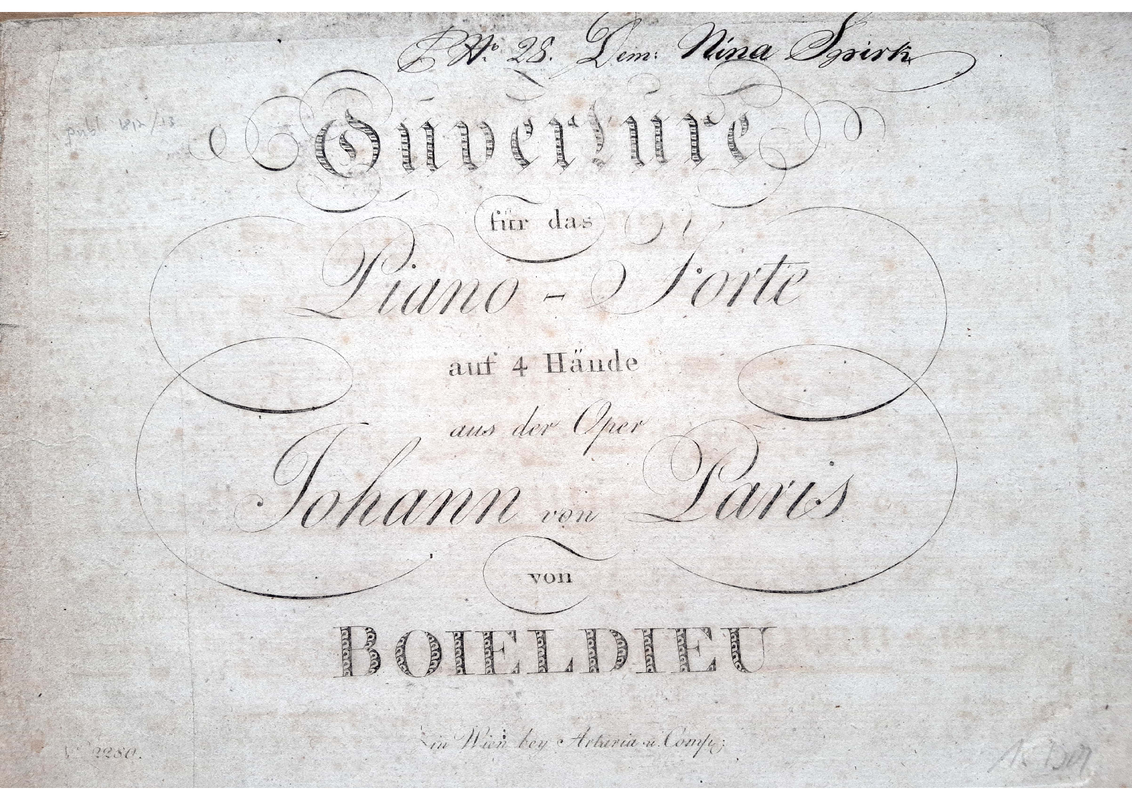 No. 28. Dem: Nina Spirk
Ouverture
publ. 1812/13
für das
Piano-Forte
auf 4 Hände
aus der Oper
Johann von Paris
von
BOIELDIEU
in Wien bey Artaria u. Comp:
2280.